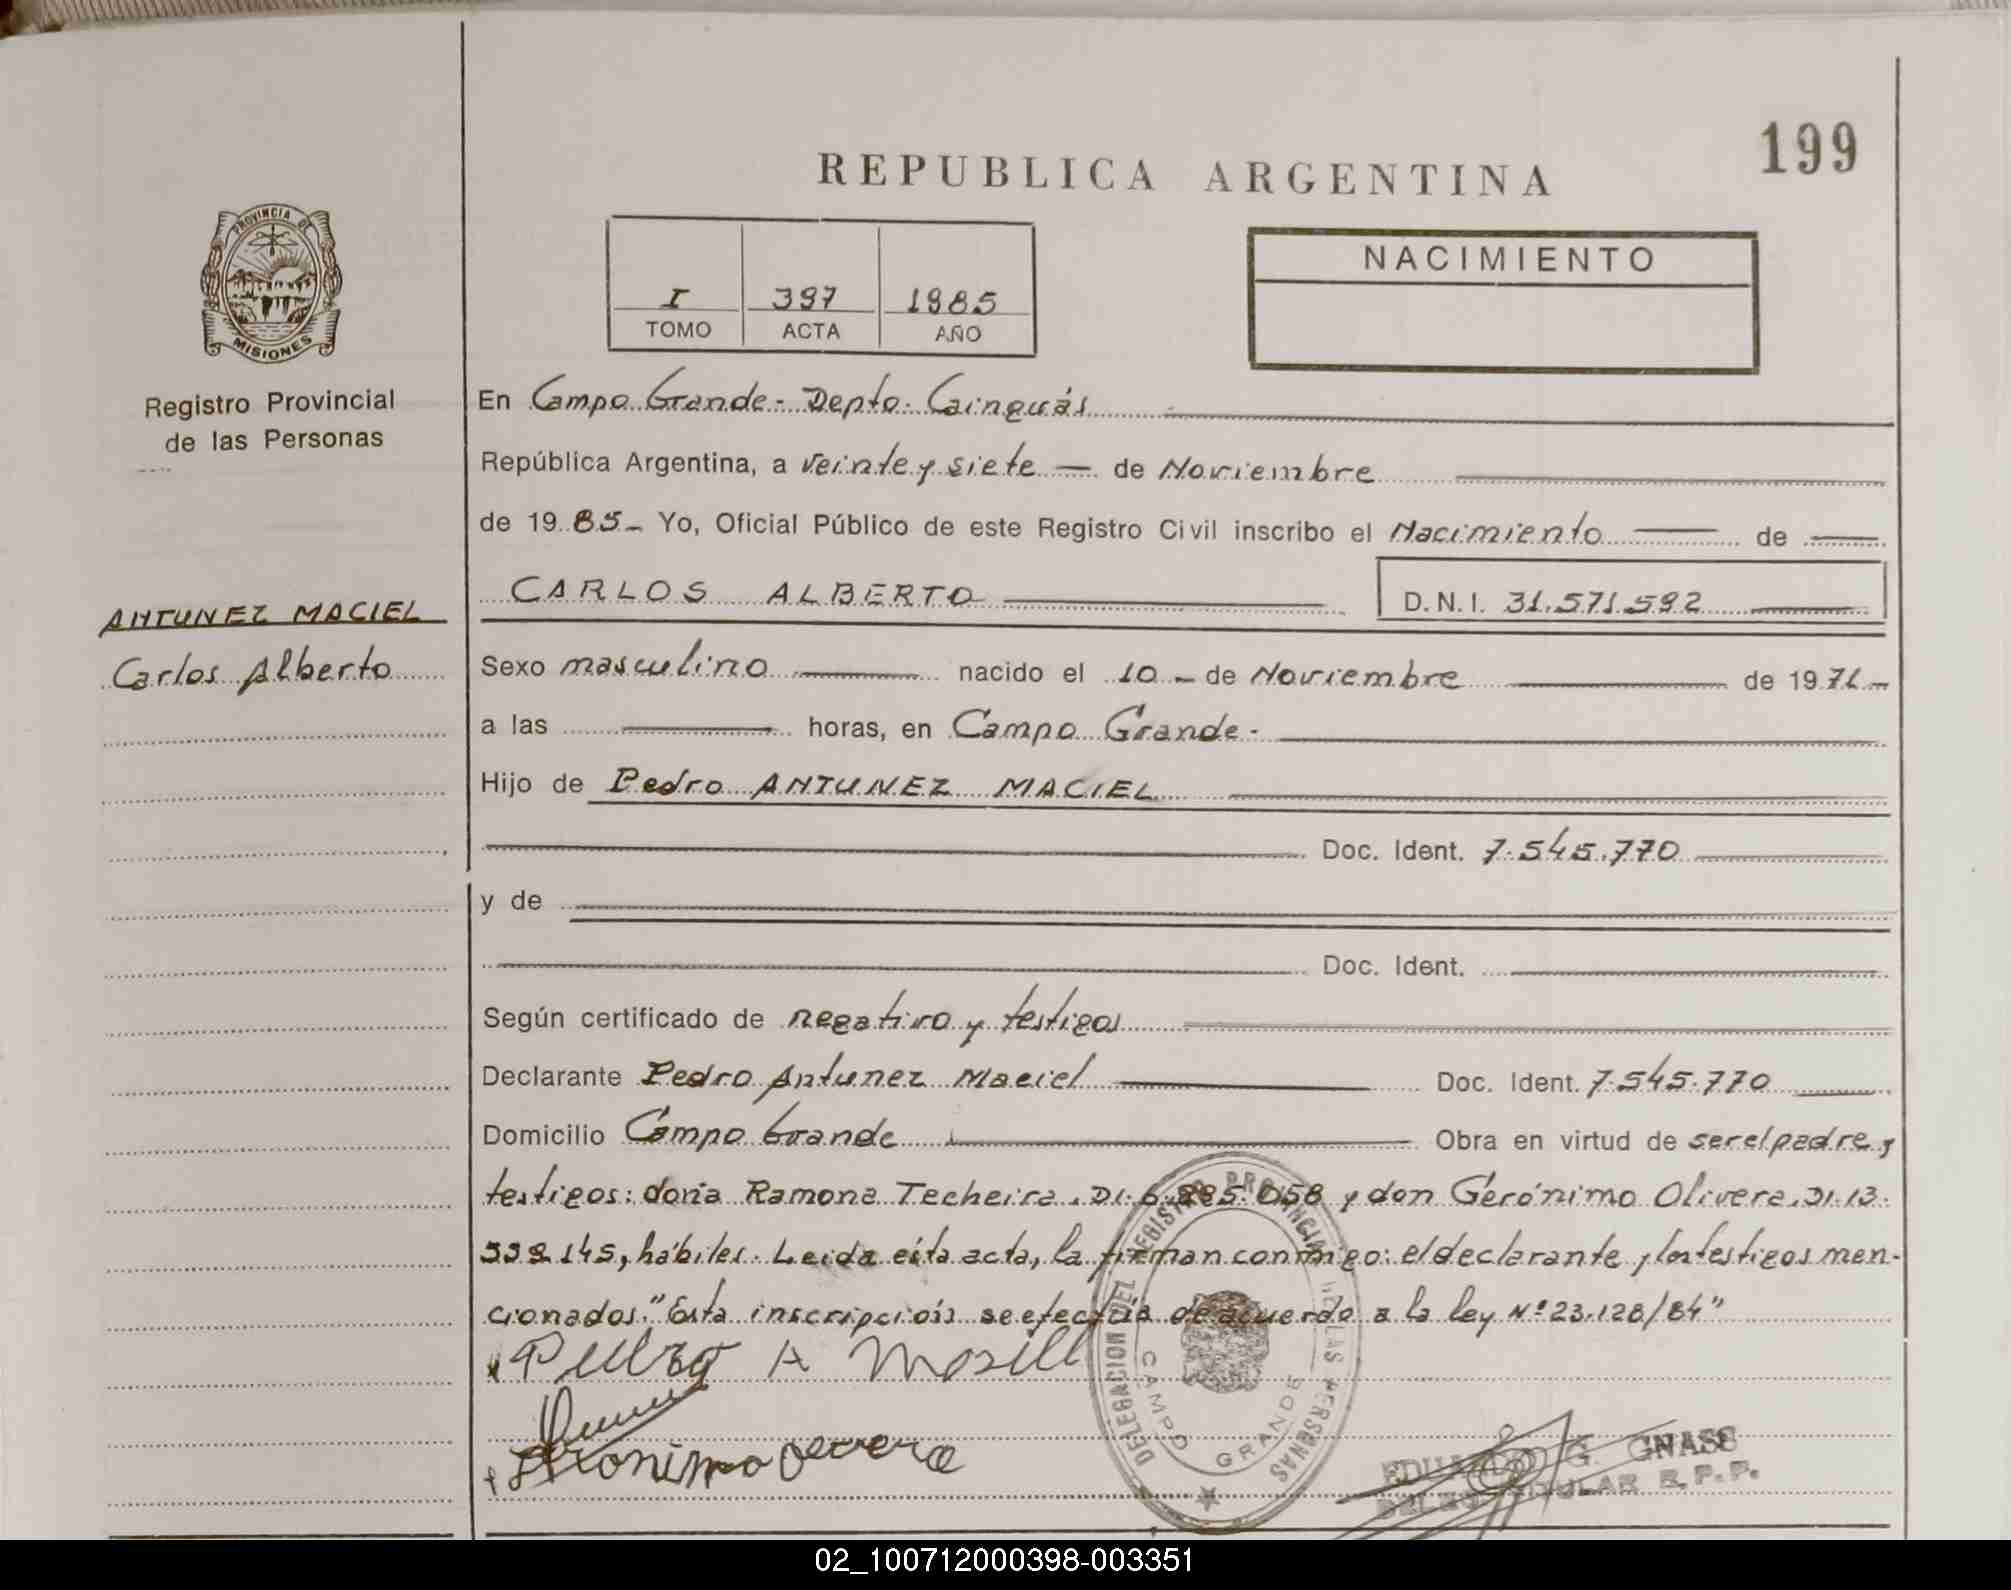 199
REPUBLICA ARGENTINA
PROVINCIA DE
MISIONES
Registro Provincial
de las Personas
I 397 1985
TOMO ACTA AÑO
NACIMIENTO
En Campo Grande - Depto. Cainguás
República Argentina, a veinte y siete — de Noviembre
de 1985 - Yo, Oficial Público de este Registro Civil inscribo el Nacimiento — de —
CARLOS ALBERTO — D.N.I. 31.571.592
ANTUNEZ MACIEL
Carlos Alberto
Sexo masculino — nacido el 10 - de Noviembre — de 1971 -
a las — horas, en Campo Grande -
Hijo de Pedro ANTUNEZ MACIEL
Doc. Ident. 7.545.770
y de
Doc. Ident.
Según certificado de negativo y testigos
Declarante Pedro Antunez Maciel — Doc. Ident. 7.545.770
Domicilio Campo Grande — Obra en virtud de ser el padre y
testigos: doña Ramona Techeira, DI. 6.885.058 y don Gerónimo Olivera, DI. 13.
339.145, hábiles. Leida esta acta, la firman conmigo: el declarante y los testigos men-
cionados. "Esta inscripción se efectúa de acuerdo a la ley Nº 23.128/84"
Pedro A
DELEGACION DEL REGISTRO PROVINCIAL DE LAS PERSONAS
CAMPO GRANDE
EDUARDO G. GNASS
DELEG. TITULAR R.P.P.
02_100712000398-003351